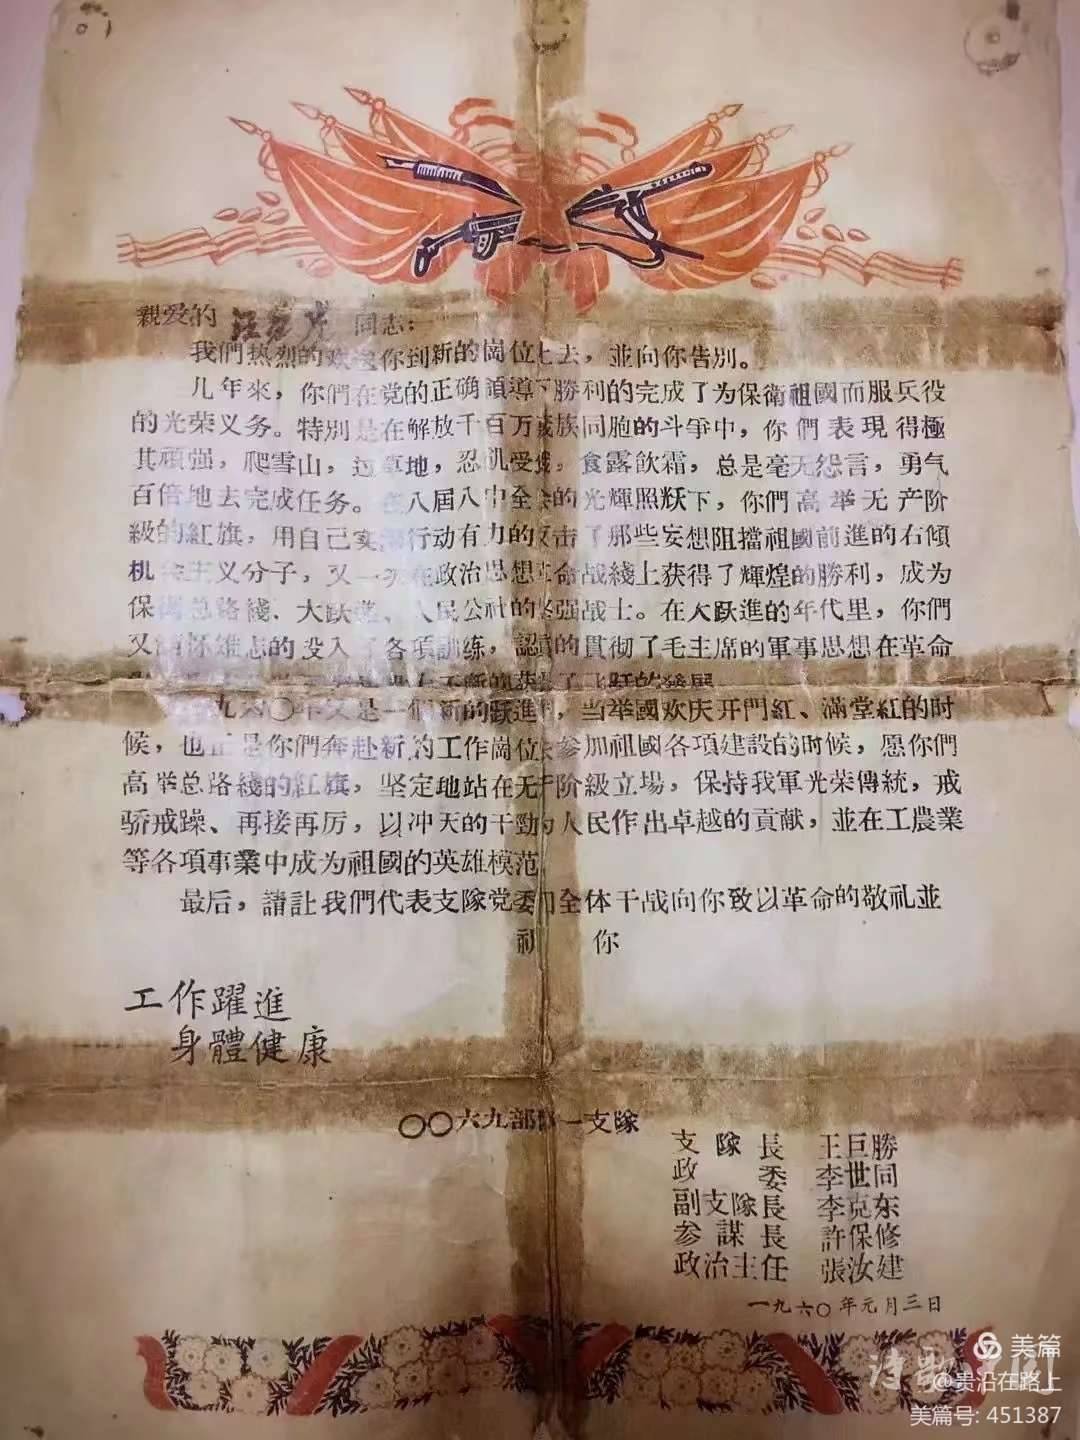 親爱的 同志：
我們热烈的欢送你到新的崗位上去，並向你告别。
几年來，你們在党的正确領導下勝利的完成了为保衛祖國而服兵役
的光荣义务。特別是在解放千百万藏族同胞的斗爭中，你們表現得極
其頑强，爬雪山，过草地，忍飢受餓，食露飲霜，总是毫无怨言，勇气
百倍地去完成任务。在八屆八中全会的光輝照耀下，你們高举无产阶
級的紅旗，用自己实际行动有力的反击了那些妄想阻擋祖國前進的右傾
机会主义分子，又一次在政治思想革命战綫上获得了輝煌的勝利，成为
保衛总路綫、大跃進、人民公社的坚强战士。在大跃進的年代里，你們
又滿怀雄志的投入了各項訓练，認真的貫彻了毛主席的軍事思想在革命
不断的获得了 跃的發展。
一九六〇年又是一個新的跃進年，当举國欢庆开門紅、滿堂紅的时
候，也正是你們奔赴新的工作崗位去参加祖國各項建設的时候，愿你們
高举总路綫的紅旗，坚定地站在无产阶級立場，保持我軍光荣傳統，戒
骄戒躁、再接再厉，以冲天的干勁为人民作出卓越的貢献，並在工農業
等各項事業中成为祖國的英雄模范
最后，請訁我們代表支隊党委和全体干战向你致以革命的敬礼並
祝 你
工作躍進
身體健康
〇〇六九部隊一支隊
支隊長 王巨勝
政委 李世同
副支隊長 李克东
参謀長 許保修
政治主任 張汝建
一九六〇年元月三日
美篇
诗歌中国
@贵沿在路上
美篇号: 451387